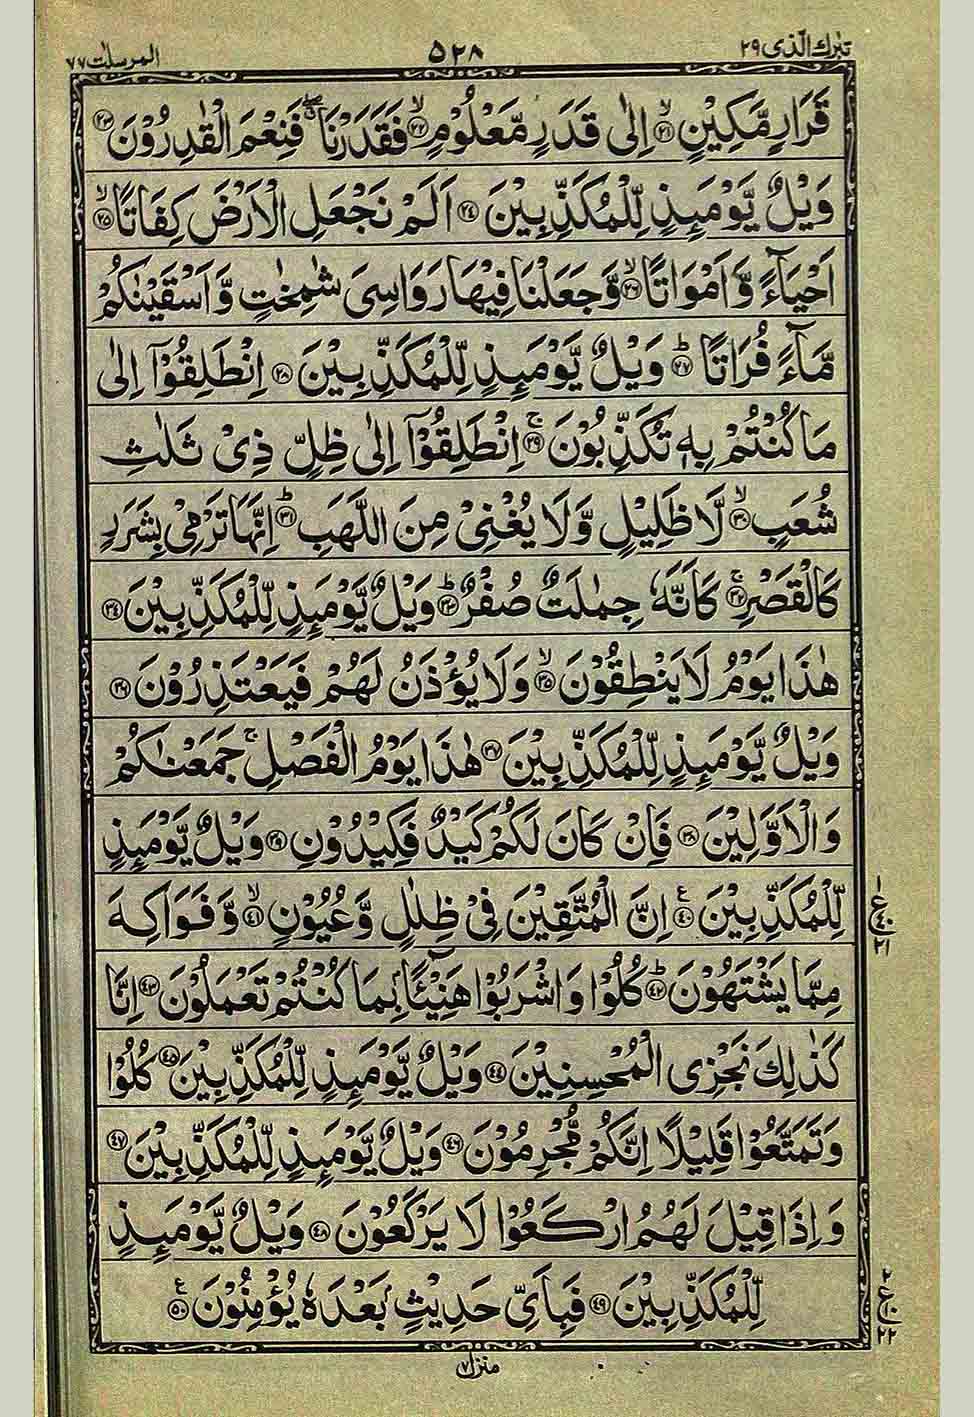 تبٰرك الّذی ٢٩
۵۲۸
المرسلٰت ٧٧
قَرَارٍ مَّكِيْنٍ ۙ﴿۲۱﴾ اِلٰى قَدَرٍ مَّعْلُوْمٍ ۙ﴿۲۲﴾ فَقَدَرْنَا ۖ فَنِعْمَ الْقٰدِرُوْنَ ﴿۲۳﴾
وَيْلٌ يَّوْمَىِٕذٍ لِّلْمُكَذِّبِيْنَ ﴿۲۴﴾ اَلَمْ نَجْعَلِ الْاَرْضَ كِفَاتًا ۙ﴿۲۵﴾
اَحْيَآءً وَّ اَمْوَاتًا ۙ﴿۲۶﴾ وَّجَعَلْنَا فِيْهَا رَوَاسِىَ شٰمِخٰتٍ وَّ اَسْقَيْنٰكُمْ
مَّآءً فُرَاتًا ؕ﴿۲۷﴾ وَيْلٌ يَّوْمَىِٕذٍ لِّلْمُكَذِّبِيْنَ ﴿۲۸﴾ اِنْطَلِقُوْۤا اِلٰى
مَا كُنْتُمْ بِهٖ تُكَذِّبُوْنَ ۚ﴿۲۹﴾ اِنْطَلِقُوْۤا اِلٰى ظِلٍّ ذِىْ ثَلٰثِ
شُعَبٍ ۙ﴿۳۰﴾ لَّا ظَلِيْلٍ وَّلَا يُغْنِىْ مِنَ اللَّهَبِ ؕ﴿۳۱﴾ اِنَّهَا تَرْمِىْ بِشَرَرٍ
كَالْقَصْرِ ۚ﴿۳۲﴾ كَاَنَّهٗ جِمٰلَتٌ صُفْرٌ ؕ﴿۳۳﴾ وَيْلٌ يَّوْمَىِٕذٍ لِّلْمُكَذِّبِيْنَ ﴿۳۴﴾
هٰذَا يَوْمُ لَا يَنْطِقُوْنَ ۙ﴿۳۵﴾ وَلَا يُؤْذَنُ لَهُمْ فَيَعْتَذِرُوْنَ ﴿۳۶﴾
وَيْلٌ يَّوْمَىِٕذٍ لِّلْمُكَذِّبِيْنَ ﴿۳۷﴾ هٰذَا يَوْمُ الْفَصْلِ ۚ جَمَعْنٰكُمْ
وَالْاَوَّلِيْنَ ﴿۳۸﴾ فَاِنْ كَانَ لَكُمْ كَيْدٌ فَكِيْدُوْنِ ﴿۳۹﴾ وَيْلٌ يَّوْمَىِٕذٍ
لِّلْمُكَذِّبِيْنَ ﴿۴۰﴾ اِنَّ الْمُتَّقِيْنَ فِىْ ظِلٰلٍ وَّعُيُوْنٍ ۙ﴿۴۱﴾ وَّفَوَاكِهَ
مِمَّا يَشْتَهُوْنَ ؕ﴿۴۲﴾ كُلُوْا وَاشْرَبُوْا هَنِيْٓئًۢا بِمَا كُنْتُمْ تَعْمَلُوْنَ ﴿۴۳﴾ اِنَّا
كَذٰلِكَ نَجْزِى الْمُحْسِنِيْنَ ﴿۴۴﴾ وَيْلٌ يَّوْمَىِٕذٍ لِّلْمُكَذِّبِيْنَ ﴿۴۵﴾ كُلُوْا
وَتَمَتَّعُوْا قَلِيْلًا اِنَّكُمْ مُّجْرِمُوْنَ ﴿۴۶﴾ وَيْلٌ يَّوْمَىِٕذٍ لِّلْمُكَذِّبِيْنَ ﴿۴۷﴾
وَاِذَا قِيْلَ لَهُمُ ارْكَعُوْا لَا يَرْكَعُوْنَ ﴿۴۸﴾ وَيْلٌ يَّوْمَىِٕذٍ
لِّلْمُكَذِّبِيْنَ ﴿۴۹﴾ فَبِاَىِّ حَدِيْثٍۢ بَعْدَهٗ يُؤْمِنُوْنَ ﴿۵۰﴾
منزل ٧